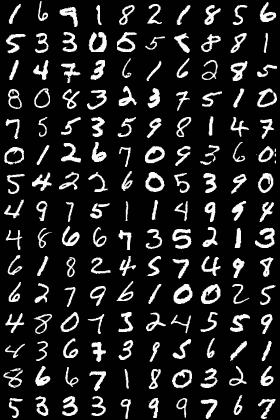 1 6 9 1 8 2 1 8 5 6
5 3 3 0 5 5 8 8 1
1 4 7 3 6 1 6 2 8 5
8 0 8 3 2 3 7 5 1 0
7 5 5 3 5 9 8 1 4 7
0 1 2 6 7 0 9 3 6 0
5 4 2 2 6 0 5 3 9 0
4 9 7 5 1 1 4 9 9 4
4 8 6 6 7 3 5 2 1 3
6 1 8 2 4 5 7 4 9 8
6 2 7 9 6 1 0 0 2 5
4 8 0 7 3 2 4 5 5 9
4 3 6 7 3 9 5 6 1 1
8 6 6 7 1 8 0 3 2 6
5 3 3 3 9 9 9 7 6 7